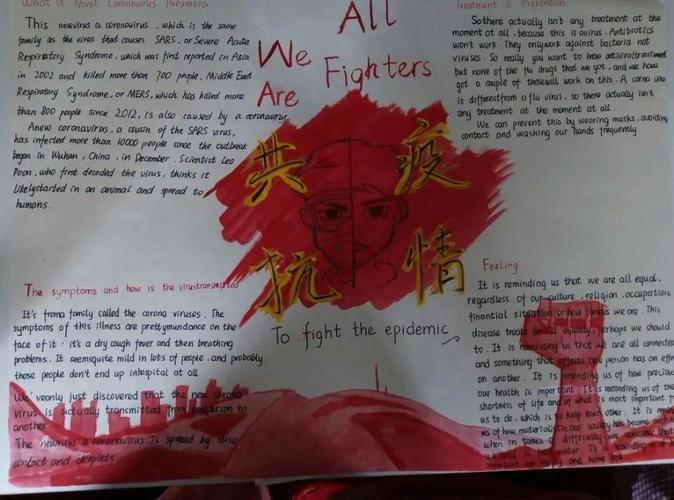 What is Novel Coronavirus Pneumonia
This newvirus a coronavirus , which is the same
family as the virus that causes SARS , or Severe Acute
Respiratory Syndrome, which was first reported in Asia
in 2002 and killed more than 700 people, Middle East
Respiratory Syndrome, or MERS, which has killed more
than 800 people since 2012, is also caused by a coronavirus.
Anew coronavirus, a cousin of the SARS virus,
has infected more than 10000 people since the outbreak
began in Wuhan, China, in December. Scientist Leo
Poon, who first decoded the virus, thinks it
likelystarted in an animal and spread to
humans.
The symptoms and how is the virustransmitted
It's froma family called the corona viruses. The
symptoms of this illness are prettymundance on the
face of it : it's a dry cough fever and then breathing
problems. It seemsquite mild in lots of people, and probably
those people don't end up inhospital at all
We'veonly just discovered that the new corona
virus is actually transmitted from oneperson to
another
The newvirus a coronavirus is spread by
contact and droplets
All
We
Fighters
Are
共 疫
抗 情
To fight the epidemic
Treatment & Prevention
Sothere actually isn't any treatment at the
moment at all, because this is avirus. Antibiotics
won't work. They onlywork against bacteria not
viruses. So really you want to know
but none of the flu drugs that we got, and we have
got a couple of thosewill work on this. A corna virus
is differentfrom a flu virus, so there actually isn't
any treatment at the moment at all.
We can prevent this by wearing masks, avoiding
contact and washing our hands frequently
Feeling
It is reminding us that we are all equal,
regardless of our culture, religion, occupation,
finantial situation or how famous we are. This
disease treats us all equally, perhaps we should
to. It is reminding us that we are all connected
and something that affects one person has an effect
on another. It is reminding us of how precious
our health is important. It is reminding us of the
shortness of life and of what is most important for
us to do, which is to help each other. It is
us of how materialistic our society has become
when in times of difficulty we